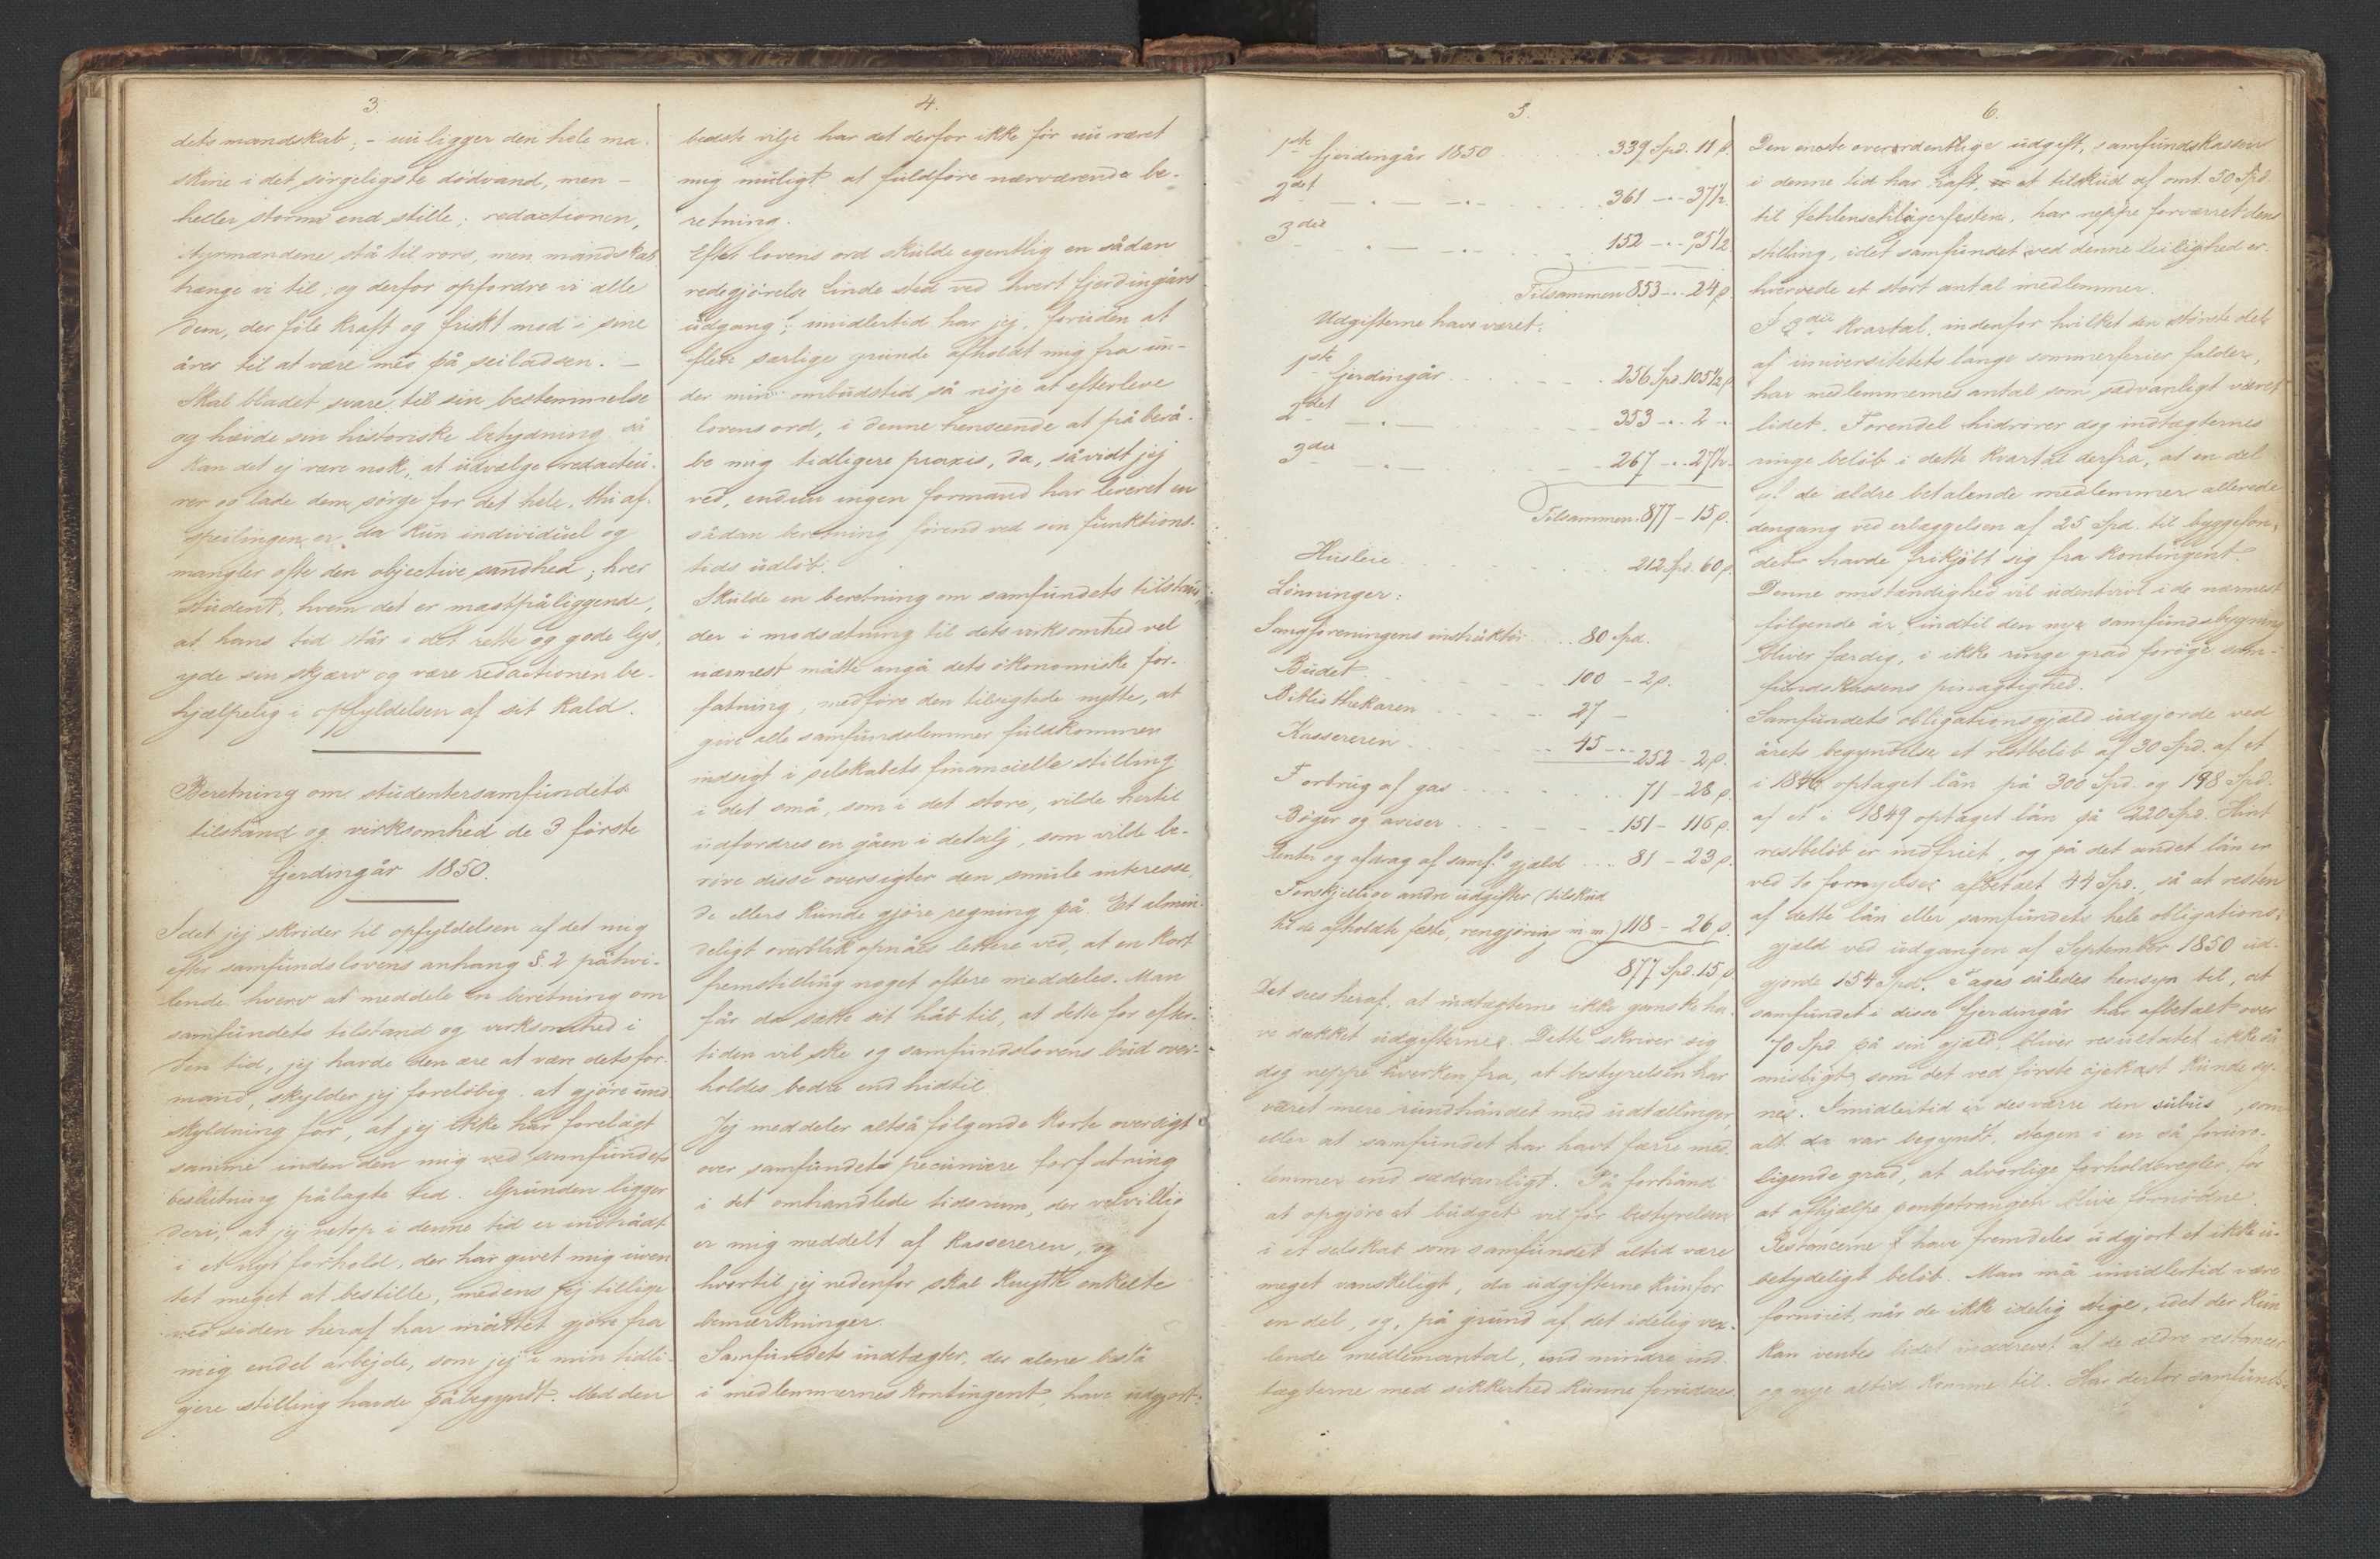 3.
dets mandskab; - nu ligger den hele ma-
skine i det sørgeligste dödvand, men -
heller storm end stille; redactionen,
styrmændene stå til rors, men mandskab
trænge vi til; og derfor opfordre vi alle
dem, der föle kraft og friskt mod i sine
årer til at være med på seiladsen. -
Skal bladet svare til sin bestemmelse
og hævde sin historiske betydning, så
kan det ej være nok, at udvælge redacteu-
rer og lade dem sörge for det hele, thi af-
speilingen er da kun individuel og
mangler ofte den objective sandhed; hver
student, hvem det er magtpåliggende,
at hans tid står i det rette og gode lys,
yde sin skjærv og være redactionen be-
hjælpelig i opfyldelsen af sit kald.
Beretning om studentersamfundets
tilstand og virksomhed de 3 første
fjerdingår 1850.
Idet jeg skrider til opfyldelsen af det mig
efter samfundslovens anhang §. 2 påhvi-
lende hverv at meddele en beretning om
samfundets tilstand og virksomhed i
den tid, jeg havde den ære at være dets for-
mand, skylder jeg foreløbig at gjöre und-
skyldning for, at jeg ikke har forelagt
samme inden den mig ved samfundets
beslutning pålagte tid. Grunden ligger
deri, at jeg netop i denne tid er indtrådt
i et nyt forhold, der har givet mig uven-
tet meget at bestille, medens jeg tillige
ved siden heraf har måttet gjöre fra
mig endel arbejde, som jeg i min tidli-
gere stilling havde påbegyndt. Med den
4.
bedste vilje har det derfor ikke för nu været
mig muligt at fuldföre nærværende be-
retning.
Efter lovens ord skulde egentlig en sådan
redegjörelse finde sted ved hvert fjerdingårs
udgang; imidlertid har jeg, foruden at
flere særlige grunde afholdt mig fra un-
der min ombudstid så nöje at efterleve
lovens ord, i denne henseende at påberå-
be mig tidligere praxis, da, såvidt jeg
ved, endnu ingen formand har leveret en
sådan beretning förend ved sin funktions-
tids udløb.
Skulde en beretning om samfundets tilstand,
der i modsætning til dets virksomhed vel
nærmest måtte angå dets ökonomiske for-
fatning, medföre den tilsigtede nytte, at
give alle samfundslemmer fuldkommen
indsigt i selskabets financielle stilling
i det små, som i det store, vilde hertil
udfordres en gåen i detalj, som vilde be-
röve disse oversigter den smule interesse,
de ellers kunde gjöre regning på. Et almin-
deligt overblik opnåes lettere ved, at en kort
fremstilling noget oftere meddeles. Man
får da sætte sit håb til, at dette for efter-
tiden vil ske og samfundslovens bud over-
holdes bedre end hidtil.
Jeg meddeler altså fölgende korte oversigt
over samfundets pecuniære forfatning
i det omhandlede tidsrum, der velvillig
er mig meddelt af kassereren, og
hvortil jeg nedenfor skal knytte enkelte
bemærkninger.
Samfundets indtægter, der alene bestå
i medlemmernes kontingent, have udgjort:
5.
1ste fjerdingår 1850 . . . . 339 Spd. 11 p.
2det — . — — . — . . . . 361 — . . 37½
3die . — — . — . . . 152 — . . 95½
Tilsammen 853 — . . 24 p.
Udgifterne have været:
1ste fjerdingår . . . . 256 Spd. 105½ p
2det — . — . . . 353 — . . 2 —
3die — . — . . . 267 — . . 27½
Tilsammen 877 — 15 p.
Husleie . . . . 212 Spd. 60 p
Lönninger:
Sangforeningens instruktör . . . 80 Spd.
Budet . . . . 100 — 2 p.
Bibliothekaren . . . . 27 —
Kassereren . . . . 45 — . . 252 — 2 p.
Forbrug af gas . . . . 71 — 28 p.
Böger og aviser . . . . 151 — 116 p.
Renter og afdrag af samf.s gjæld . . . . 81 — 23 p.
Forskjellige andre udgifter (tilskud
til de afholdte feste, rengjöring m.m.) 118 — 26 p.
877 Spd. 15 p
Det sees heraf, at indtægterne ikke ganske ha-
ve dækket udgifterne. Dette skriver sig
dog neppe hverken fra, at bestyrelsen har
været mere rundhåndet med udtællinger,
eller at samfundet har havt færre med-
lemmer end sædvanligt. På forhånd
at opgjöre et budget vil for bestyrelsen
i et selskab som samfundet altid være
meget vanskeligt, da udgifterne kun for
en del, og, på grund af det idelig vex-
lende medlemantal, end mindre ind-
tægterne med sikkerhed kunne forudsees.
6.
Den eneste overordentlige udgift, samfundskassen
i denne tid har haft, et tilskud af omt. 50 Spd.
til Øehlenschlägerfesten, har neppe forværret dens
stilling, idet samfundet ved denne leilighed er-
hvervede et stort antal medlemmer.
I 3die kvartal, indenfor hvilket den störste del
af universitetets lange sommerferier falder,
har medlemmernes antal som sædvanligt været
lidet. Forendel hidrörer dog indtægternes
ringe belöb i dette kvartal derfra, at en del
af de ældre betalende medlemmer allerede
dengang ved erlæggelsen af 25 Spd. til byggefon-
det havde frikjöbt sig fra kontingent.
Denne omstændighed vil udentvivl i de nærmest
fölgende år, indtil den nye samfundsbygning
bliver færdig, i ikke ringe grad foröge sam-
fundskassens pinagtighed.
Samfundets obligationsgjæld udgjorde ved
årets begyndelse et restbelöb af 30 Spd. af et
i 1846 optaget lån på 300 Spd. og 198 Spd.
af et i 1849 optaget lån på 220 Spd. Hint
restbelöb er indfriet, og på det andet lån er
ved to fornyelser afbetalt 44 Spd., så at resten
af dette lån eller samfundets hele obligations-
gjæld ved udgangen af September 1850 ud-
gjorde 154 Spd. Tages således hensyn til, at
samfundet i disse fjerdingår har afbetalt over
70 Spd. på sin gjæld, bliver resultatet ikke så
misligt, som det ved förste öjekast kunde sy-
nes. Imidlertid er desværre den subus, som
alt da var begyndt, stegen i en så foruro-
ligende grad, at alvorlige forholdsregler for
at afhjælpe pengetrangen blive fornödne.
Restancerne have fremdeles udgjort et ikke u-
betydeligt belöb. Man må imidlertid være
fornöiet, når de ikke idelig stige, idet der kun
kan ventes lidet inddrevet af de ældre restancer
og nye altid komme til. Har derfor samfund-